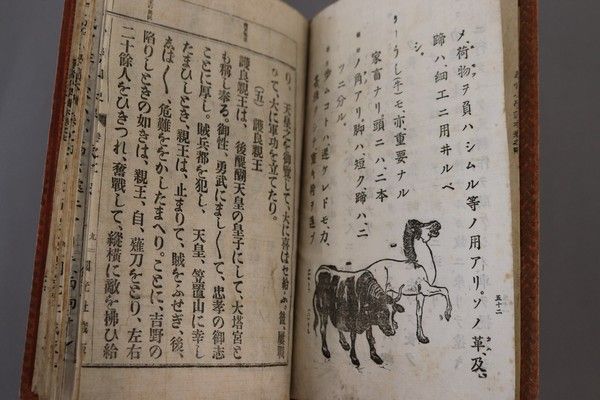 メ、荷物ヲ負ハシムル等ノ用アリ。ソノ革、及
蹄ハ、細工ニ用ヰルベ
シ。
うし(牛)モ、亦、重要ナル
家畜ナリ。頭ニハ二本
ノ角アリ。脚ハ短ク、蹄ハ二
ツニ分ル。
歩ムコトハ遅ケレドモ、力
重キ荷ヲ運ブ
五十二
り、天皇、之を御覽して、大に喜ばせ給ふ。後、屢戰
ひて、大に軍功を立てたり。
(五) 護良親王
護良親王は、後醍醐天皇の皇子にして、大塔宮と
も稱し奉る。御性、勇武にまし〱て、忠孝の御志
ことに厚し。賊兵都を犯し、天皇、笠置山に幸し
たまひしとき、親王は、止まりて、賊をふせぎ、後、
しば〱、危難ををかしたまへり。ことに、吉野の
陷りしときの如きは、親王、自、薙刀をとり、左右
二十餘人をひきつれ、奮戰して、縱橫に敵を拂ひ給
九